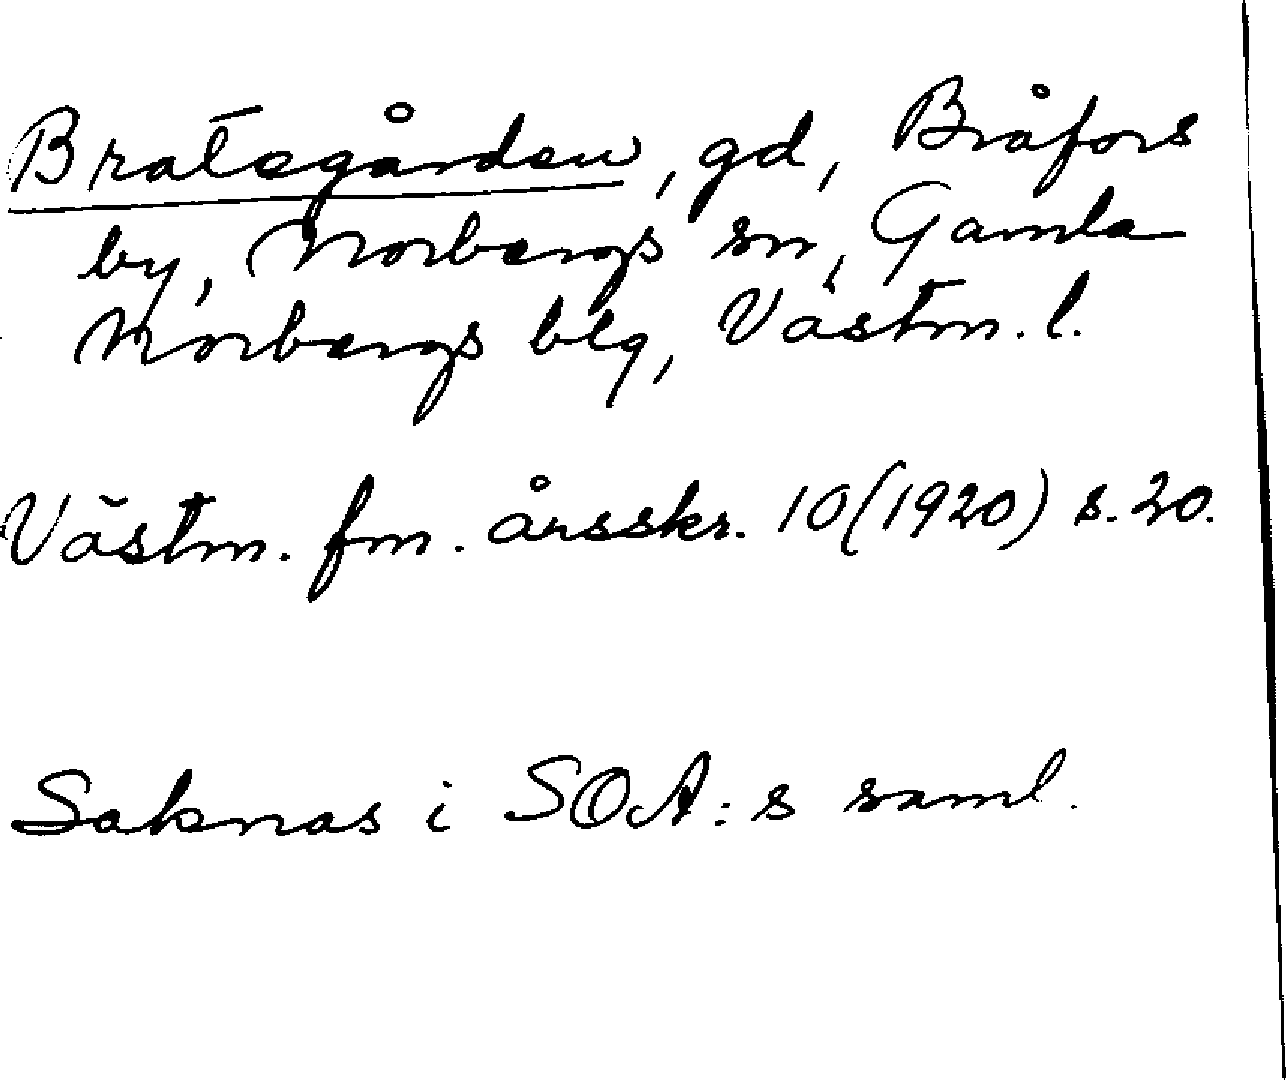 Brategården, gd, Bråfors
by, Norbergs sn, Gamla
Norbergs blg, Västm. l.
Västm. fm. årsskr. 10 (1920) s. 20.
Saknas i SOA:s saml.